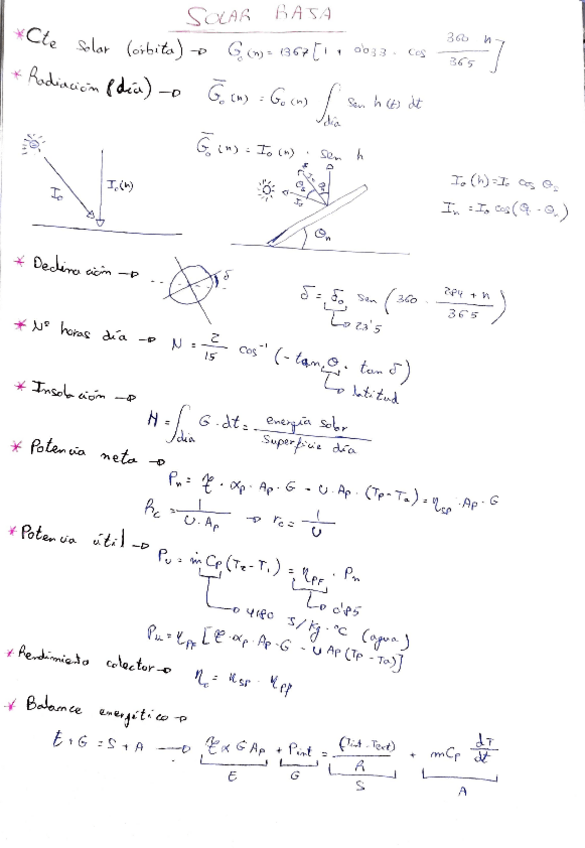 SOLAR BAJA
* Cte solar (órbita) → G₀(n) = 1367 [1 + 0'033 · cos 360 n / 365]
* Radiación (día) → G̅₀(n) = G₀(n) ∫día sen h(t) dt
G̅₀(n) = I₀(n) · sen h
I₀ I₀(h)
θz I₀ θn
I₀(h) = I₀ cos θz
In = I₀ cos(θz - θn)
* Declinación → δ
δ = δ₀ sen (360 · 284 + n / 365)
↳ 23'5
* Nº horas día → N = 2/15 cos⁻¹ (- tan θ · tan δ)
↳ latitud
* Insolación →
H = ∫día G · dt = energía solar / superficie día
* Potencia neta →
Pn = τ · αp · Ap · G - U · Ap · (Tp - Ta) = ηsp · Ap · G
Rc = 1 / U · Ap → rc = 1 / U
* Potencia útil →
Pu = ṁ Cp (T₂ - T₁) = ηpf · Pn
↳ 4180 J/kg · °C (agua) ↳ 0'85
Pu = ηpf [τ · αp · Ap · G - U Ap (Tp - Ta)]
* Rendimiento colector → ηc = ηsp · ηpf
* Balance energético →
E + G = S + A → τ α G Ap + Pint = (Tint - Text) / R + m Cp dT / dt
E G S A